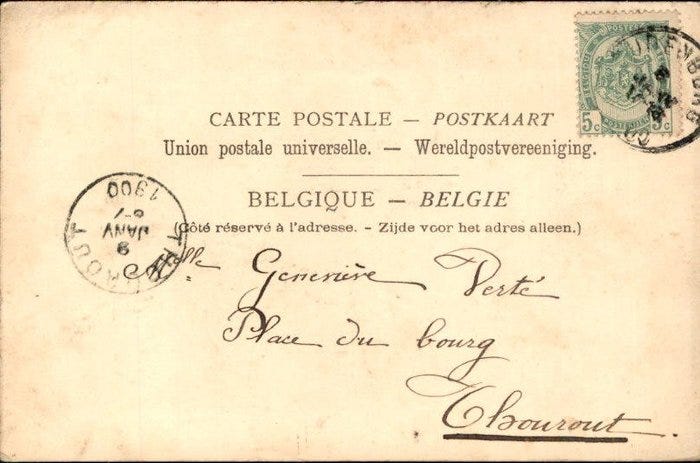 CARTE POSTALE — POSTKAART
Union postale universelle. — Wereldpostvereeniging.
BELGIQUE — BELGIE
(Côté réservé à l'adresse. - Zijde voor het adres alleen.)
Melle Geneviève Verté
Place du bourg
Thourout
THOUROUT
9
JANV
8-7
1900
5c 5c